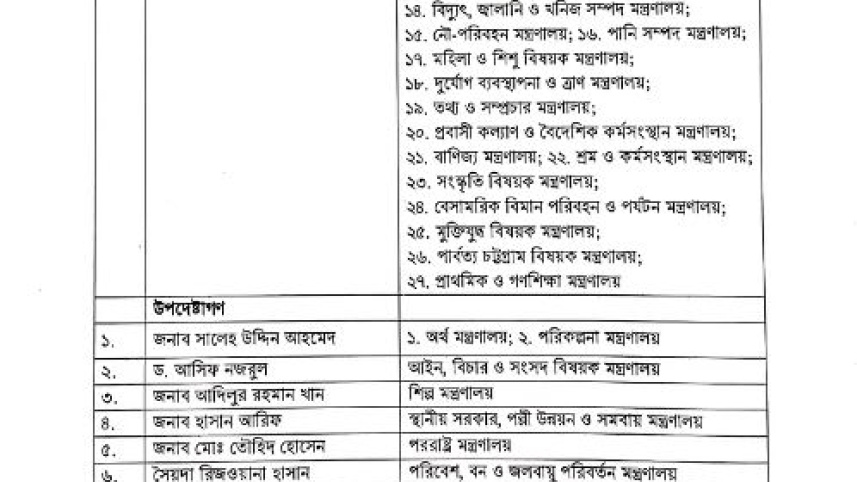 ১৪. বিদ্যুৎ, জ্বালানি ও খনিজ সম্পদ মন্ত্রণালয়;
১৫. নৌ-পরিবহন মন্ত্রণালয়; ১৬. পানি সম্পদ মন্ত্রণালয়;
১৭. মহিলা ও শিশু বিষয়ক মন্ত্রণালয়;
১৮. দুর্যোগ ব্যবস্থাপনা ও ত্রাণ মন্ত্রণালয়;
১৯. তথ্য ও সম্প্রচার মন্ত্রণালয়;
২০. প্রবাসী কল্যাণ ও বৈদেশিক কর্মসংস্থান মন্ত্রণালয়;
২১. বাণিজ্য মন্ত্রণালয়; ২২. শ্রম ও কর্মসংস্থান মন্ত্রণালয়;
২৩. সংস্কৃতি বিষয়ক মন্ত্রণালয়;
২৪. বেসামরিক বিমান পরিবহন ও পর্যটন মন্ত্রণালয়;
২৫. মুক্তিযুদ্ধ বিষয়ক মন্ত্রণালয়;
২৬. পার্বত্য চট্টগ্রাম বিষয়ক মন্ত্রণালয়;
২৭. প্রাথমিক ও গণশিক্ষা মন্ত্রণালয়
উপদেষ্টাগণ
১. জনাব সালেহ উদ্দিন আহমেদ ১. অর্থ মন্ত্রণালয়; ২. পরিকল্পনা মন্ত্রণালয়
২. ড. আসিফ নজরুল আইন, বিচার ও সংসদ বিষয়ক মন্ত্রণালয়
৩. জনাব আদিলুর রহমান খান শিল্প মন্ত্রণালয়
৪. জনাব হাসান আরিফ স্থানীয় সরকার, পল্লী উন্নয়ন ও সমবায় মন্ত্রণালয়
৫. জনাব মোঃ তৌহিদ হোসেন পররাষ্ট্র মন্ত্রণালয়
৬. সৈয়দা রিজওয়ানা হাসান পরিবেশ, বন ও জলবায়ু পরিবর্তন মন্ত্রণালয়